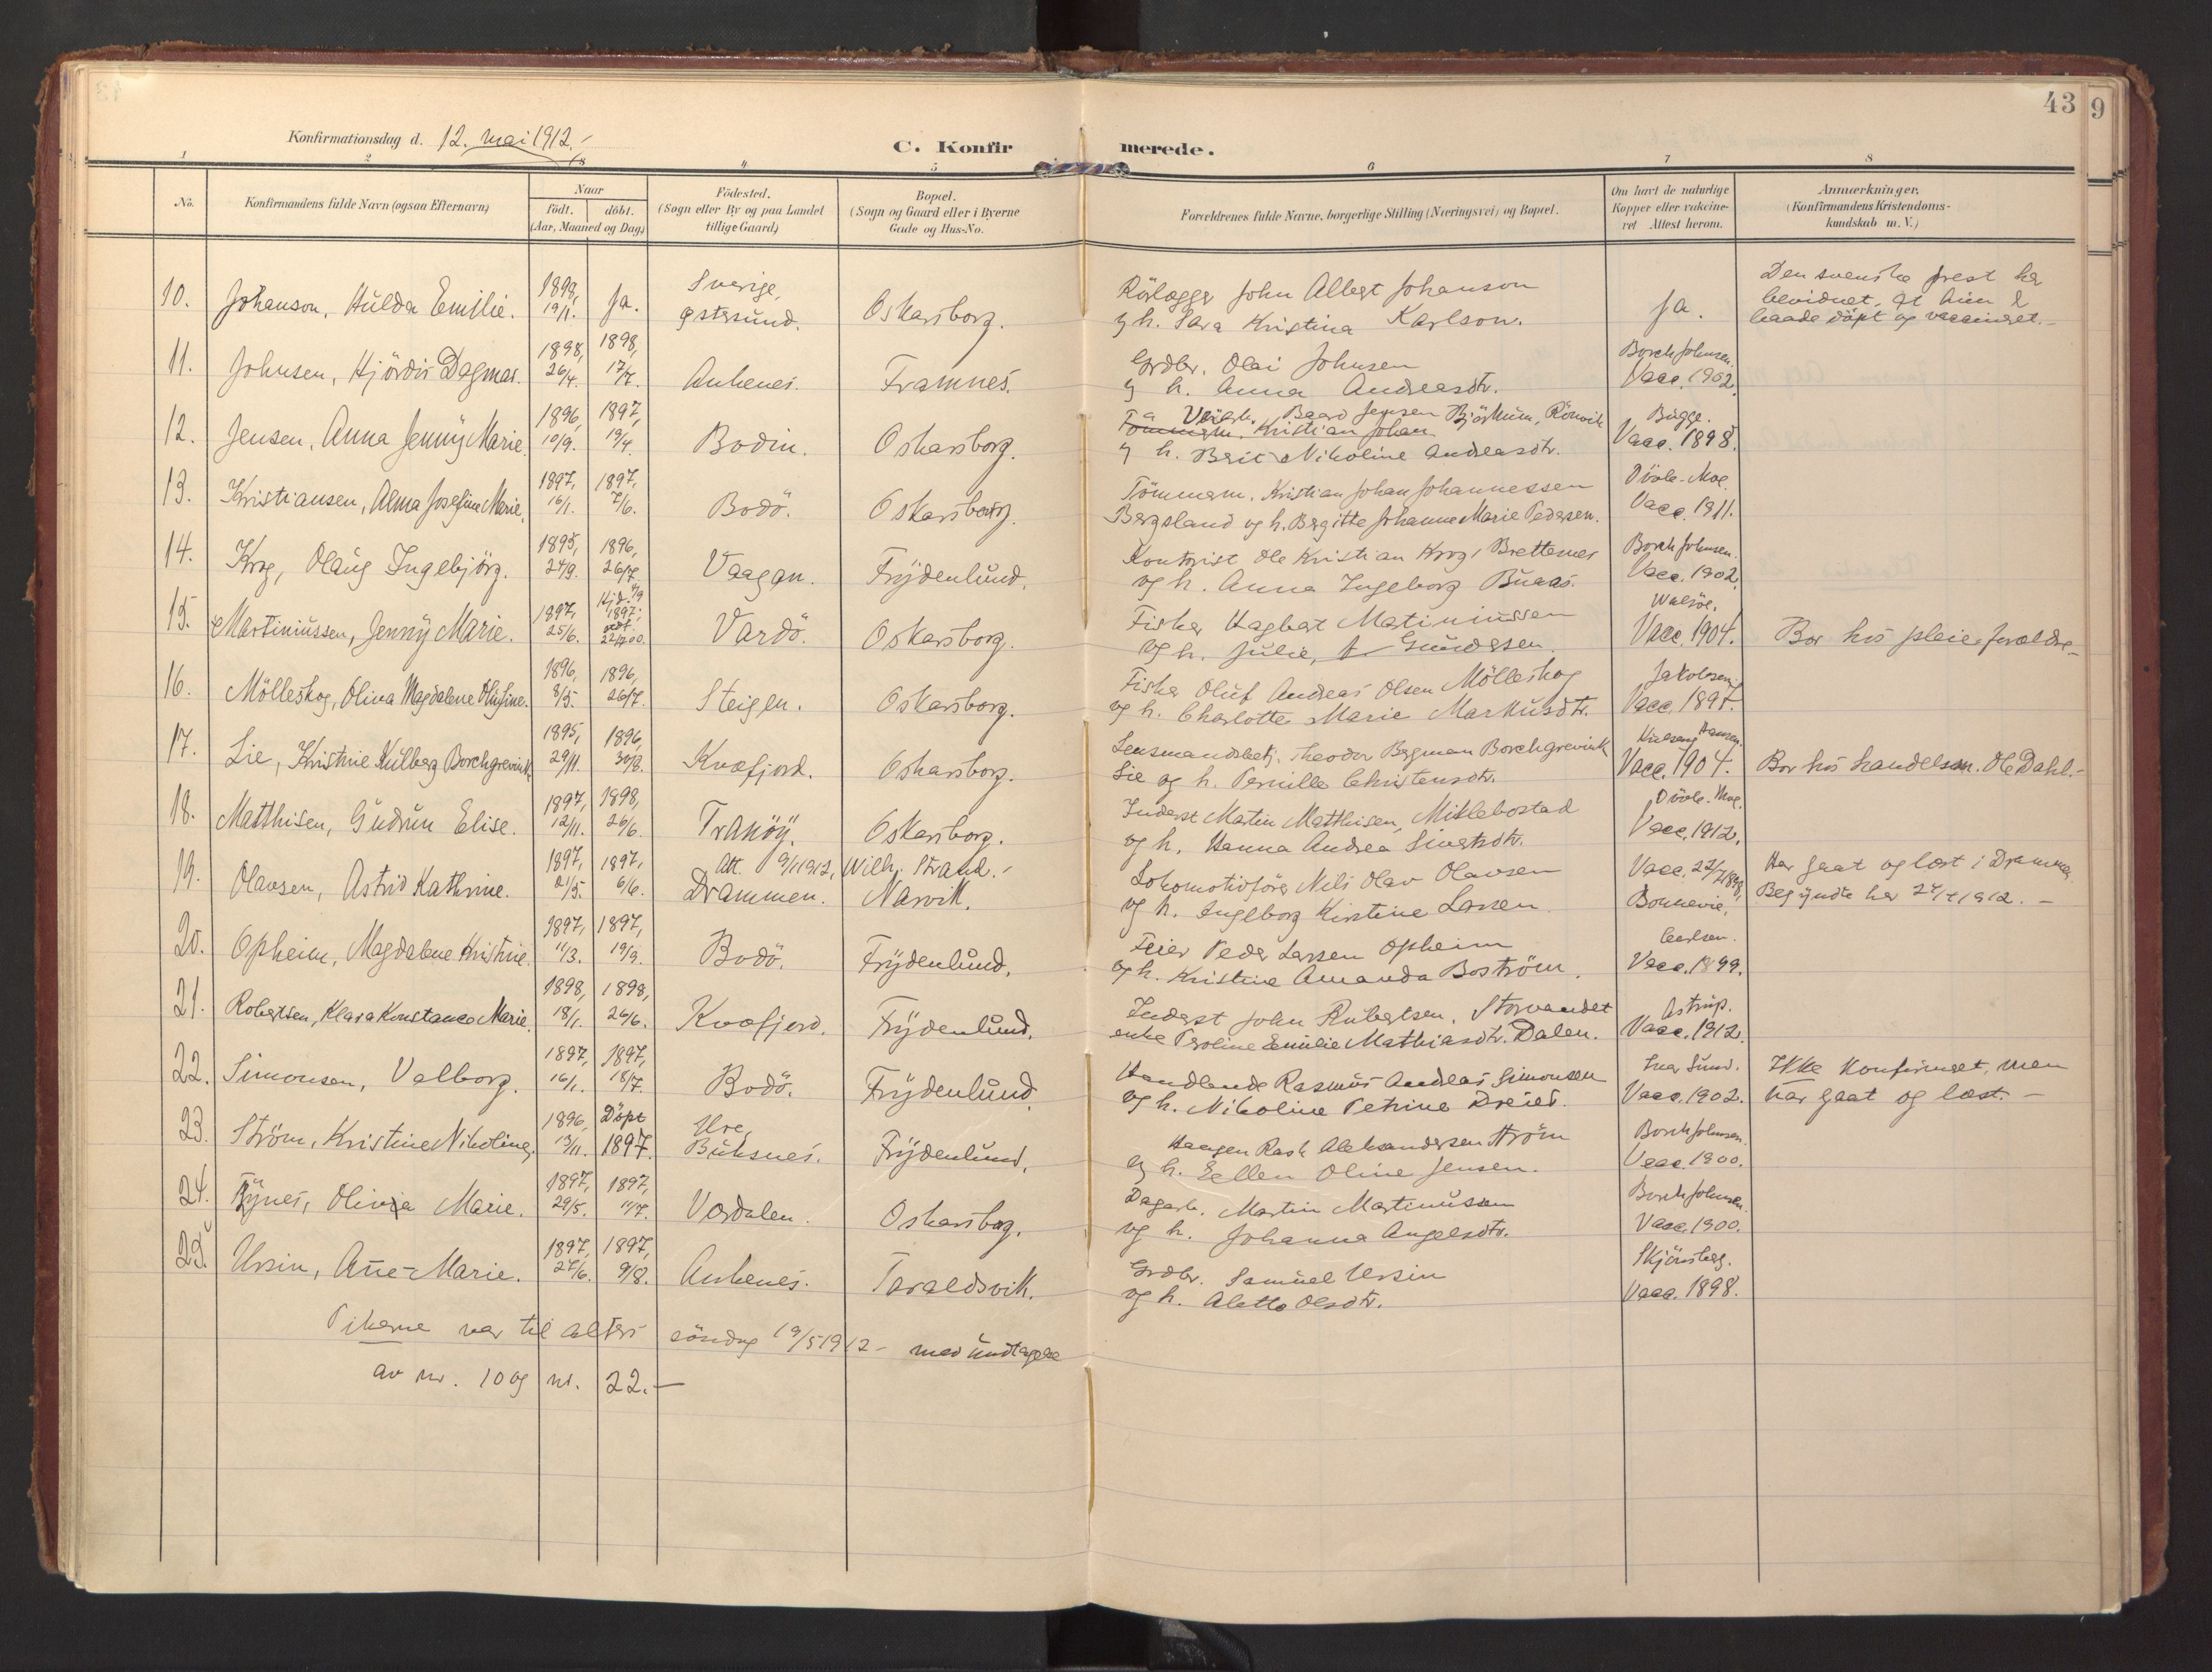 43
9
Konfirmationsdag d. 12. mai 1912.-
18
C. Konfir merede.
1 2 4 5 6 7 8
No. Konfirmandens fulde Navn (ogsaa Efternavn) Naar födt. döbt. (Aar, Maaned og Dag) Födested. (Sogn eller By og paa Landet tillige Gaard) Bopæl. (Sogn og Gaard eller i Byerne Gade og Hus-No. Forældrenes fulde Navne, borgerlige Stilling (Næringsvei) og Bopæl. Om havt de naturlige Kopper eller vakcineret Attest herom. Anmærkninger. (Konfirmandens Kristendomskundskab m. V.)
10. Johanson, Hulda Emilie. 1898, 19/1. Ja. Sverige, Østersund. Oskarsborg. Rörlægger John Albert Johanson og h. Sara Kristina Karlson. Ja. Den svenske prest har bevidnet, at hun er baade döpt og vaccineret.-
11. Johnsen, Hjördis Dagmar. 1898, 26/4. 1898, 17/7. Ankenes. Framnes. Grdbr. Olai Johnsen og h. Anna Andreasdtr. Borch Johnsen. Vacc. 1902.
12. Jensen, Anna Jenny Marie. 1896, 10/9. 1897, 19/4. Bodin. Oskarsborg. Baard Jensen Bjöskum, Rönvik Tömmerm. Kristian Johan og h. Berit Nikoline Andreasdtr. Bugge. Vacc. 1898.
13. Kristiansen, Alma Josefine Marie. 1897, 16/1. 1897, 7/6. Bodö. Oskarsborg. Tömmerm. Kristian Johan Johannessen Bergsland og h. Bergitte Johanne Marie Pedersen. Vacc. 1911.
14. Krog, Olaug Ingebjörg. 1895, 24/9. 1896, 26/7. Vaagan. Frydenlund. Kontorist Ole Kristian Krog, Brettesnes og h. Anna Ingeborg Buaas. Borch Johnsen. Vacc. 1902.
15. Martiniussen, Jenny Marie. 1897, 25/6. Hjd. 1897, Vardö. Oskarsborg. Fisker Hagbart Martiniussen og h. Julie, f. Gundersen. Vacc. 1904. Bor hos pleieforældre.-
16. Mölleskog, Oliva Magdalene Olufine. 1896, 8/5. 1896, 26/7. Steigen. Oskarsborg. Fisker Oluf Andreas Olsen Mölleskog og h. Charlotte Marie Markusdtr. Jakobsen. Vacc. 1897.
17. Lie, Kristine Kulberg Borchgrevink. 1895, 29/11. 1896, 30/8. Kvæfjord. Oskarsborg. Lensmandsbetj. Theodor Bergman Borchgrevink Lie og h. Pernille Christensdtr. Hansen. Vacc. 1904. Bor hos handelsm. Ole Dahl.-
18. Matthisen, Gudrun Elise. 1897, 12/11. 1898, 26/6. Tranöy. Oskarsborg. Inderst Martin Matthisen, Miklebostad og h. Hanna Andrea Sivertsdtr. Vacc. 1912.
19. Olavsen, Astrid Kathrine. 1897, 21/5. 1897, 6/6. Att. 9/1 1912, Wilh. Strand.- Drammen. Narvik. Lokomotivförer Nils Olav Olavsen og h. Ingeborg Kirstine Larsen. Vacc. 22/7 1898, Bonnevie. Har gaat og læst i Drammen. Begyndte her 24/4 1912.-
20. Opheim, Magdalene Kristine. 1897, 11/3. 1897, 19/9. Bodö. Frydenlund. Feier Peder Larsen Opheim og h. Kristine Amanda Boström. Carlsen. Vacc. 1899.
21. Robertsen, Klara Konstance Marie. 1898, 18/1. 1898, 26/6. Kvæfjord. Frydenlund. Inderst John Robertsen. Storvandet enke Peroline Emilie Mathiasdtr. Dalen. Astrup. Vacc. 1912.
22. Simonsen, Valborg. 1897, 16/1. 1897, 18/7. Bodö. Frydenlund. Handlende Rasmus Andreas Simonsen og h. Nikoline Petrine Dreier. Vacc. 1902. Ikke konfirmeret, men har gaat og læst.-
23. Ström, Kristine Nikoline. 1896, 13/11. Döpt 1897. Ure, Buksnes. Frydenlund. Haagen Rask Aleksandersen Ström og h. Ellen Oline Jensen. Borch Johnsen. Vacc. 1900.
24. Rynes, Olivia Marie. 1897, 29/5. 1897, 11/7. Værdalen. Oskarsborg. Dagarb. Martin Martinussen og h. Johanna Angelsdtr. Borch Johnsen. Vacc. 1900.
25. Ursin, Ane-Marie. 1897, 27/6. 1897, 9/8. Ankenes. Taraldsvik. Grdbr. Samuel Ursin og h. Aletta Olsdtr. Skjönsberg. Vacc. 1898.
Pikerne var til alters söndag 19/5 1912 - med undtagelse
av nr. 10 og nr. 22.-